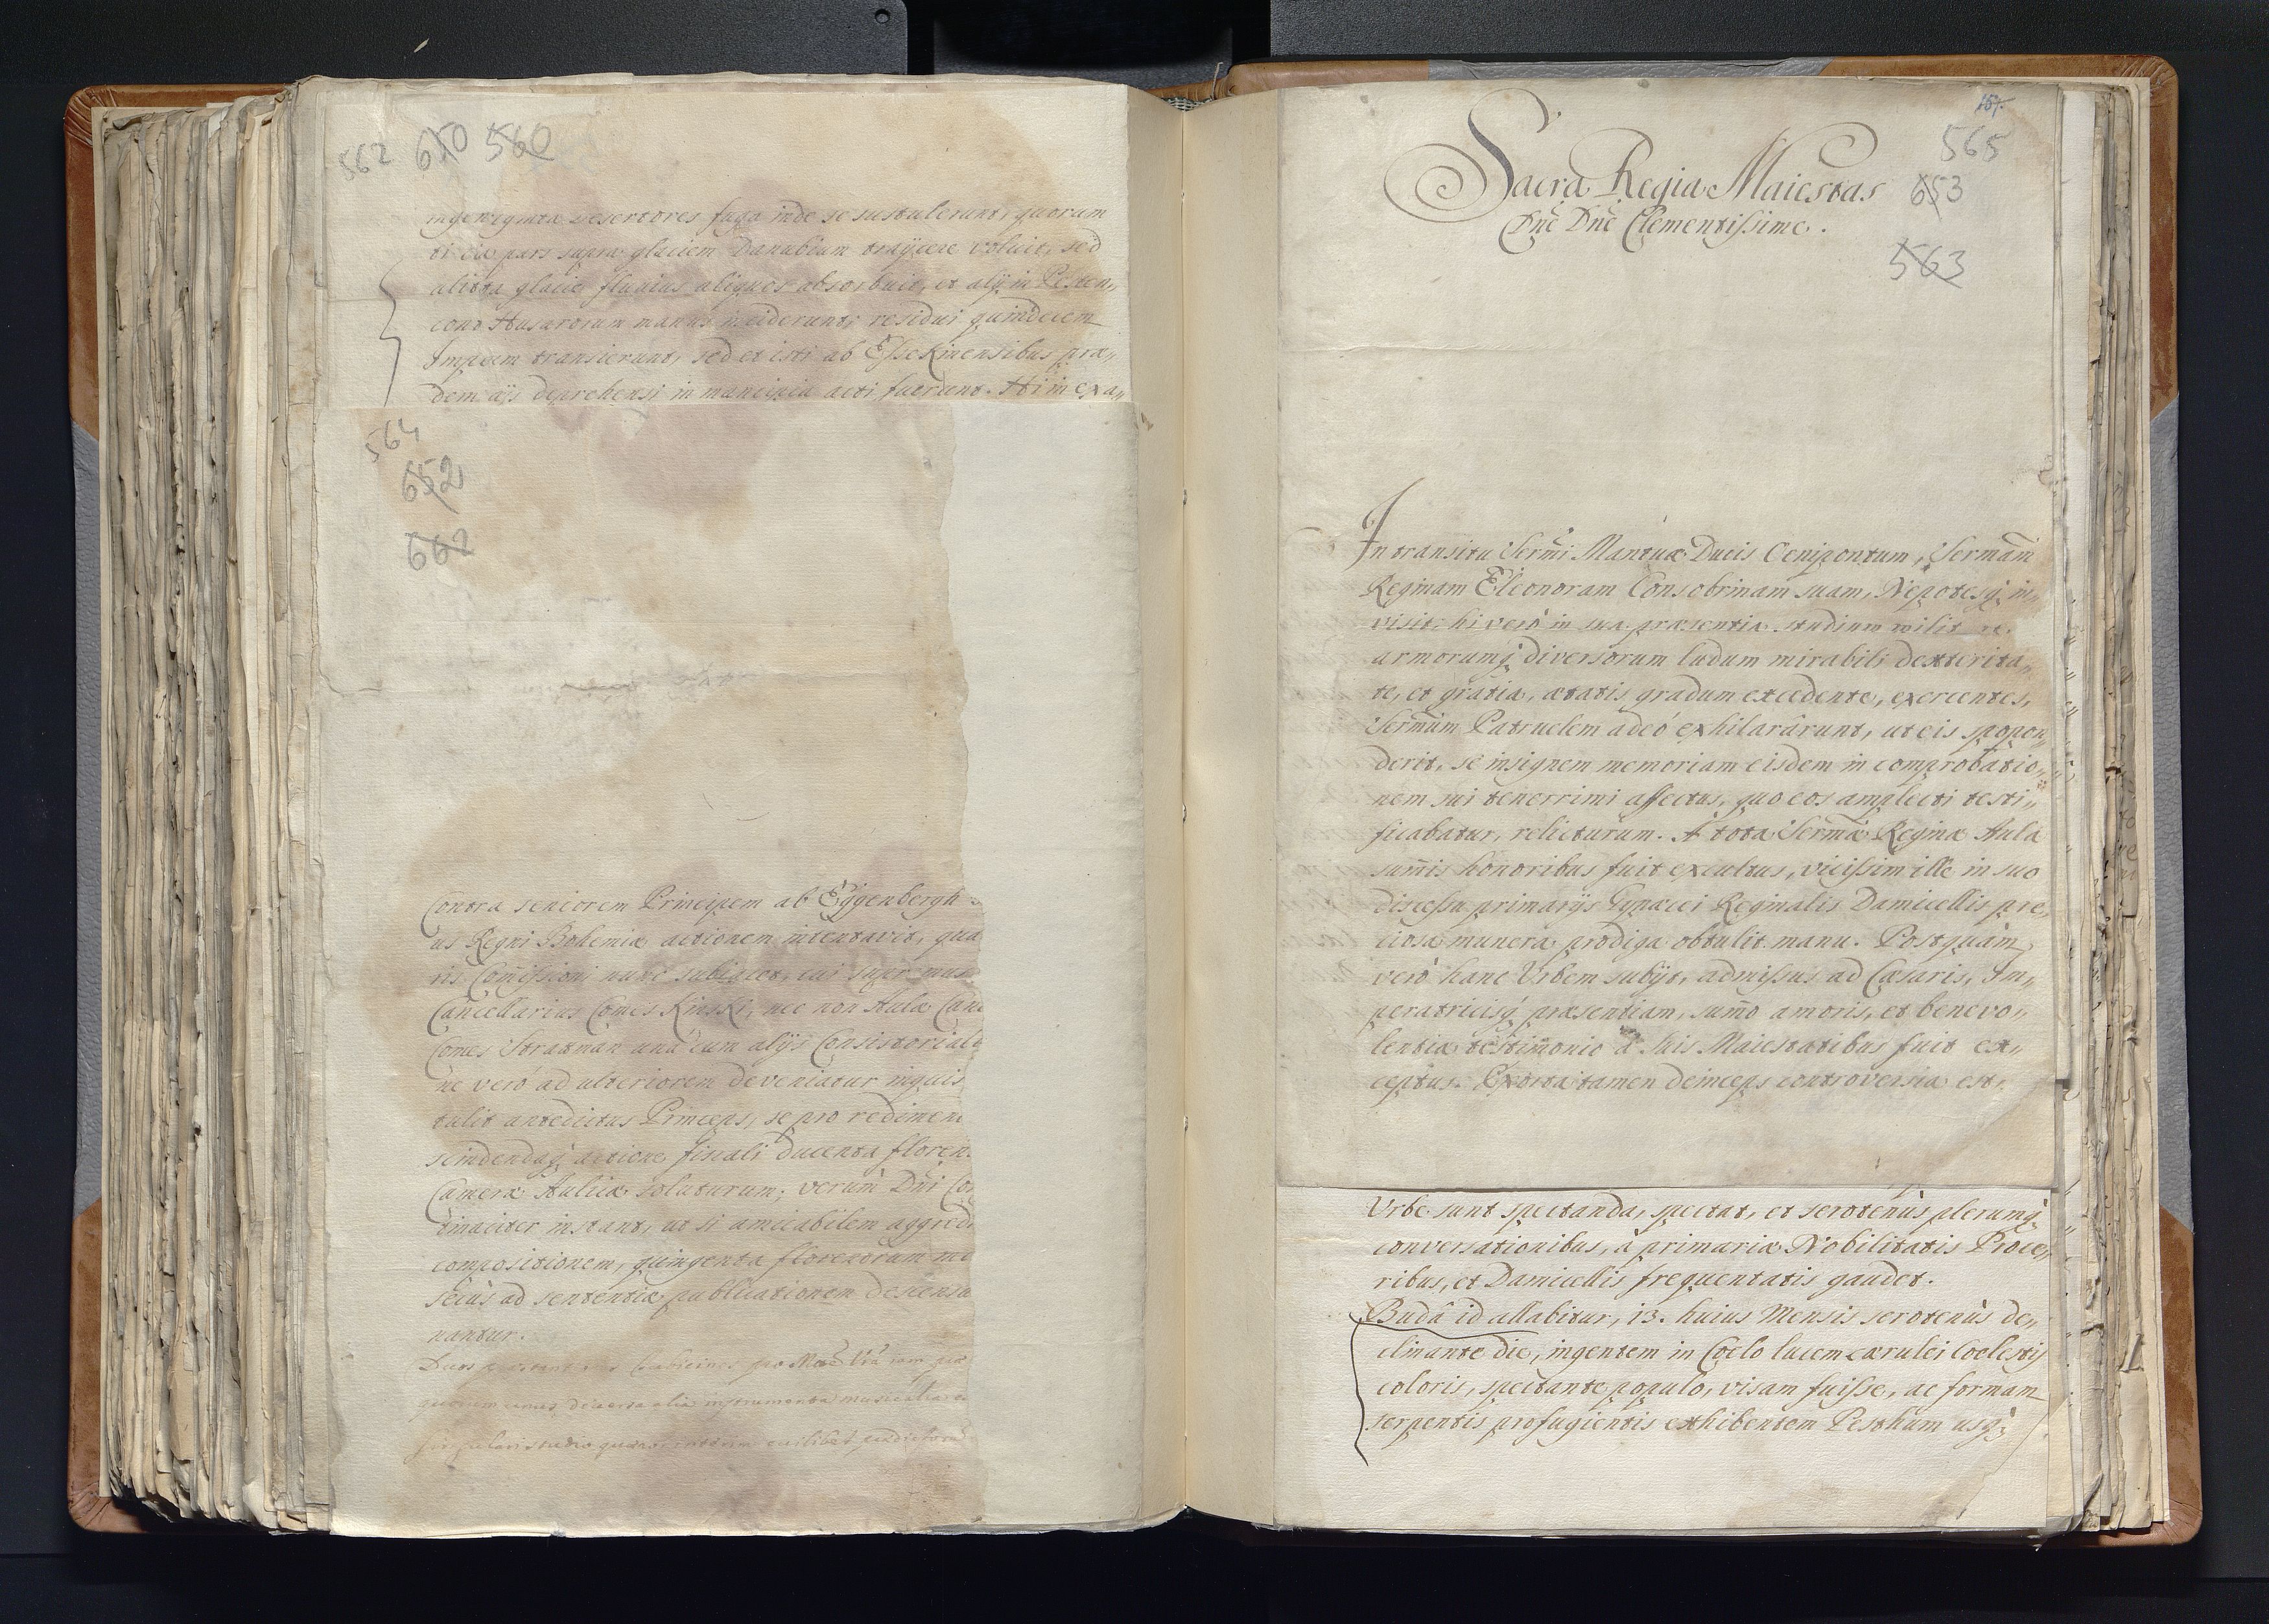 562 610 560
desertores fuga inde se sustulerunt, quorum
pars supra glaciem Danubium traÿcere voluit, sed
glacie fluvius aliquos absorbuit, et alÿ in Pesten„
Husarorum manus inciderunt; residui quindecem
transierunt, sed et isti ab Essekinensibus præ„
dem deprehensi in mancipia acti fuerunt. Hi in exa„
564
652
662
Contra seniorem Principem ab Eggenbergh
us Regni Bohemiæ actionem intentavit, qua
ris Comissioni nunc subiacet, cui supr
Cancellarius Comes Kinski, nec non Aulæ Can
Comes Stratman una cum alÿs Consistoriali
ne verò ad ulteriorem deveniatur inquis
tulit antedictus Princeps, se pro redimen
scindendaq actione fiscali ducenta floren
Cameræ Aulicæ soluturum; verùm Dni Co
tinaciter instant, ut si amicabilem aggredi
compositionem, quingenta florenorum mi
secus ad sententiæ publicationem descensu
nantur.
Duos pro
diversa alia instrumenta musicalia
singulari studio cuilibet
565
653
563
Sacra Regia Maiestas
Dne Dne Clementissime.
In transitu Sermi Mantuæ Ducis Oenipontum, Sermam
Reginam Eleonoram Consobrinam suam, Nepotesq in„
visit: hi verò in sua præsentia studium milit re.
armorumq diversorum ludum mirabili dexterita„
te, et gratia, ætatis gradum excedente, exercentes,
Sermum Patruelem adeò exhilarârunt, ut eis spopon„
derit, se insignem memoriam eisdem in comprobatio„
nem sui tenerrimi affectus, quo eos amplecti testi„
ficabatur, relicturum. A tota Sermæ Reginæ Aula
sumis honoribus fuit excultus, vicissim ille in suo
discessu primarÿs Gynæcei Reginalis Damicellis pre„
ciosa munera prodiga obtulit manu. Postquàm
verò hanc Urbem subÿt, admissus ad Cæsaris, Im„
peratricisq præsentiam, sumo amoris, et benevo„
lentiæ testimonio à suis Maiestatibus fuit ex„
ceptus. Exorta tamen deinceps controversia est,
Urbe sunt spectanda, spectat, et serotenùs plerumq
conversationibus, à primariæ Nobilitatis Proce„
ribus, et Damicellis frequentatis gaudet.
Budâ id allabitur, 13. huius Mensis serotenùs de„
clinante die, ingentem in Coelo lucem cærulei Coelestis
coloris, spectante populo, visam fuisse, ac formam
serpentis profugientis exhibentem Pesthum usq;